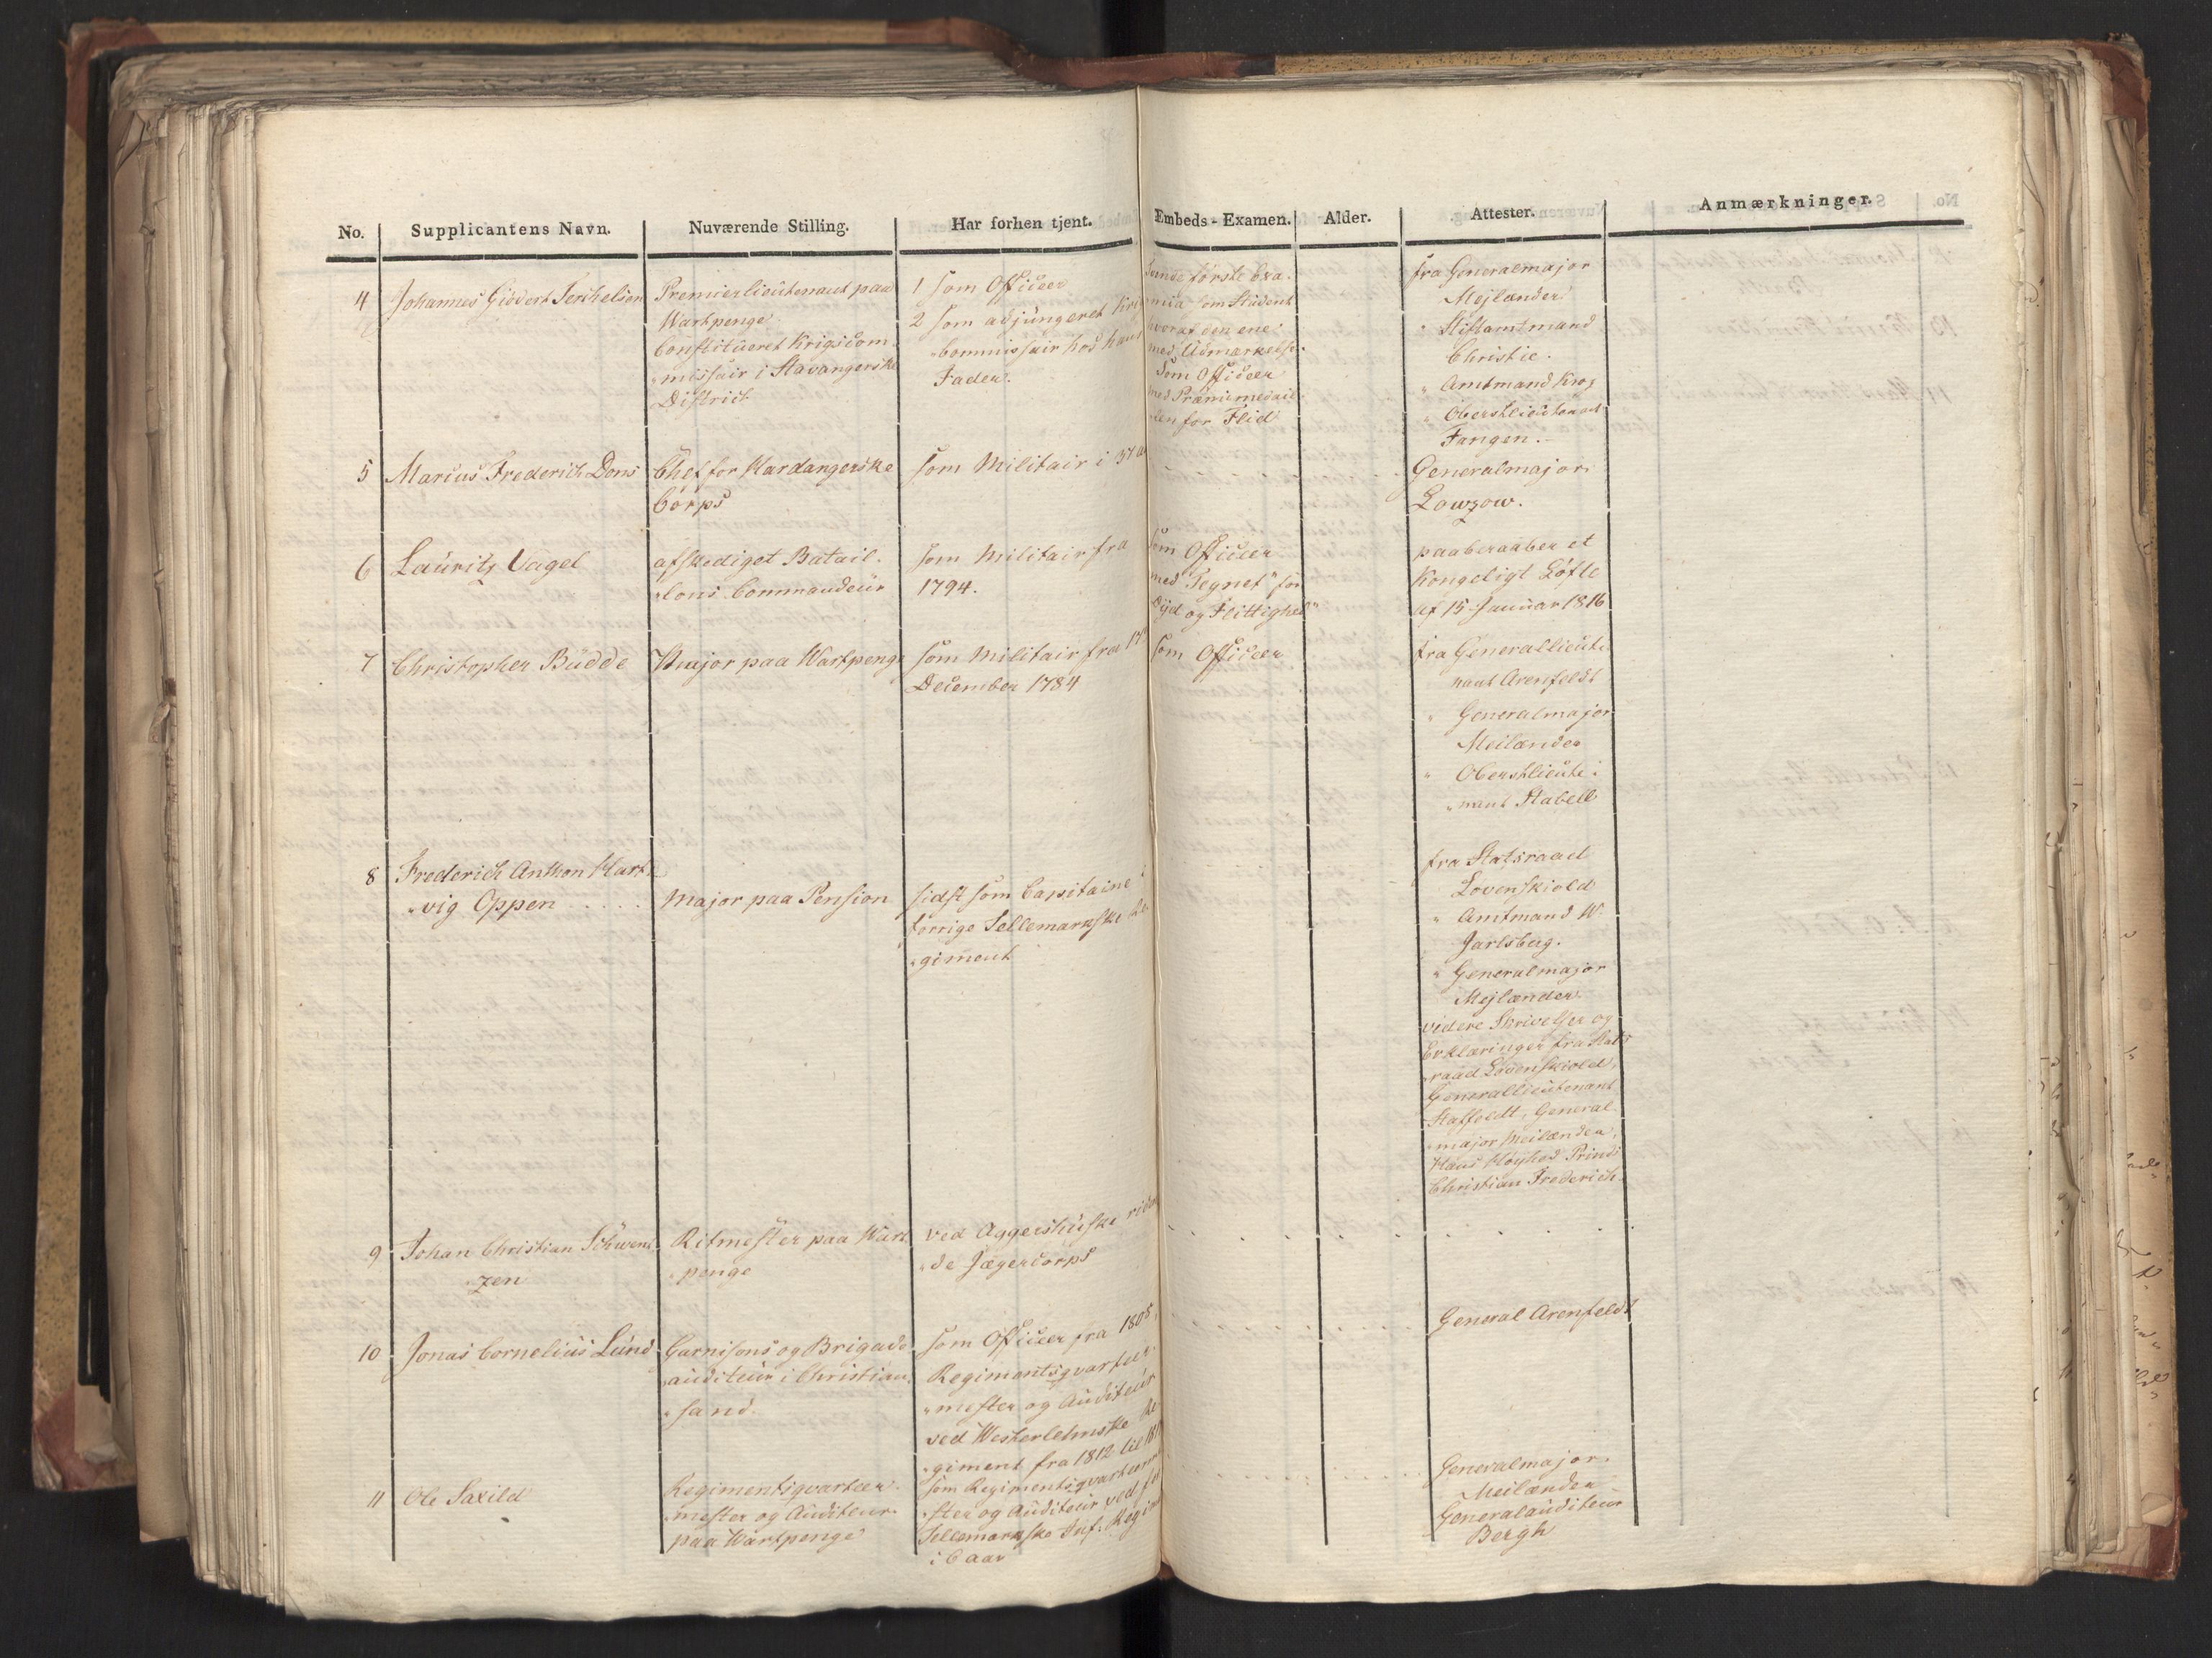 No. Supplicantens Navn. Nuværende Stilling. Har forhen tjent. Embeds-Examen. Alder. Attester. Anmærkninger.
4 Johannes Giödert
Premierlieutenant paa
Wartpenge
Constitueret Krigscom-
„missair i Stavangerske
District
1 som Officeer
2 som adjungeret
„commissair hos hans
Fader.
første Exa-
som Student
hvoraf den ene
med Udmærkelse.
Som Officeer
med Præmiemedail-
len for Flid
fra Generalmajor
Mejlænder
„ Stiftamtmand
Christie.
„ Amtmand Krog
„ Oberstlieutenant
Fangen.
5 Marius Frederich Dons
Chef for Hardangerske
Corps
som Militair i 37
Generalmajor
Lowzow.
6 Lauritz Vagel
afskediget Batail-
„lons Commandeur
som Militair fra
1794.
som Officeer
med "Tegnet" for
Dyd og Flittighed"
paaberaaber et
Kongeligt Löfte
af 15 Januar 1816
7 Christopher Büdde
Major paa Wartpenge
som Militair fra
December 1784
som Officeer
fra Generallieute-
nant Arenfeldt
„ Generalmajor
Meilænder
„ Oberstlieute-
„nant Stabell
8 Frederich Anthon Hart-
„vig Oppen . . . . .
Major paa Pension
sidst som Capitaine i
forrige Tellemarkske Re-
„giment
fra Statsraad
Lövenskiold
„ Amtmand W.
Jarlsberg.
„ Generalmajor
Mejlænder.
videre Skrivelser og
Erklæringer fra Stats-
„raad Lövenskiold,
Generallieutenant
Staffeldt, General-
„major Meilænder,
Hans Höyhed Prinds
Christian Frederich.
9 Johan Christian Schwent-
„zen
Ritmester paa Wart-
„penge
ved Aggershuuske riden-
„de Jægercorps
10 Jonas Cornelius Lund
Garnisons og Brigade
„auditeur i Christian-
„sand.
som Officeer fra 1805,
Regimentsqvarteer-
„mester og Auditeur
ved Westerlehnske Re-
„giment fra 1812 til
General Arenfeldt
11 Ole Saxild
Regimentsqvarteer-
„mester og Auditeur
paa Wartpenge
som Regimentsqvarteerme-
„ster og Auditeur ved
Tellemarkske Inf. Regim
i 6 aar
Generalmajor
Meilænder
Generalauditeur
Bergh